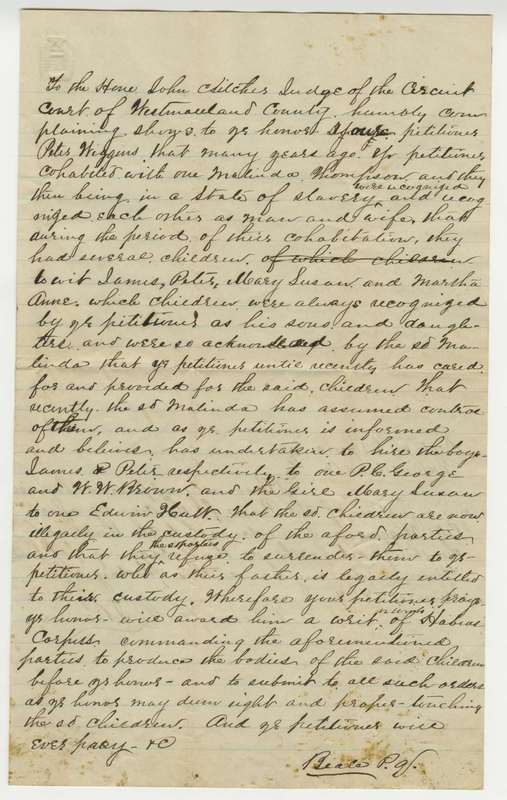 To the Hone John Critcher Judge of the Circuit
Court of Westmoreland County, humbly com
plaining shows to yr honor your petitioner
Peter Wiggins, that many years ago Yr petitioner
cohabited with one Malinda Thompson and they
then being in a State of slavery, were recognized and recog
nized each other as man and wife, that
during the period of their cohabitation, they
had several children, of which children
to wit James, Peter, Mary Susan and Martha
Anne, which children were always recognized
by yr petitioner as his sons and daugh-
ters and were so acknowledged by the sd Ma-
linda that yr petitioner until recently has cared
for and provided for the said children that
recently the sd Malinda has assumed control
of them, and as yr petitioner is informed
and believes, has undertaken to hire the boys
James & Peter respectively to one P. C. George
and W. W. Brown, and the Girl Mary Susan
to one Edwin Hutt. That the sd children are now
illegally in the custody of the aford parties
and that they the sd parties refuse to surrender them to yr
petitioner who as their father is legally entitled
to their custody. Wherefore your petitioner prays
yr honor will award him a writ of Habeas
Corpus commanding the aforementioned
parties to produce the bodies of the said children
before yr honor - and to submit to all such orders
as yr honor may deem right and proper touching
the sd children. And yr petitioner will
ever pray - &C
Beale P. Q.